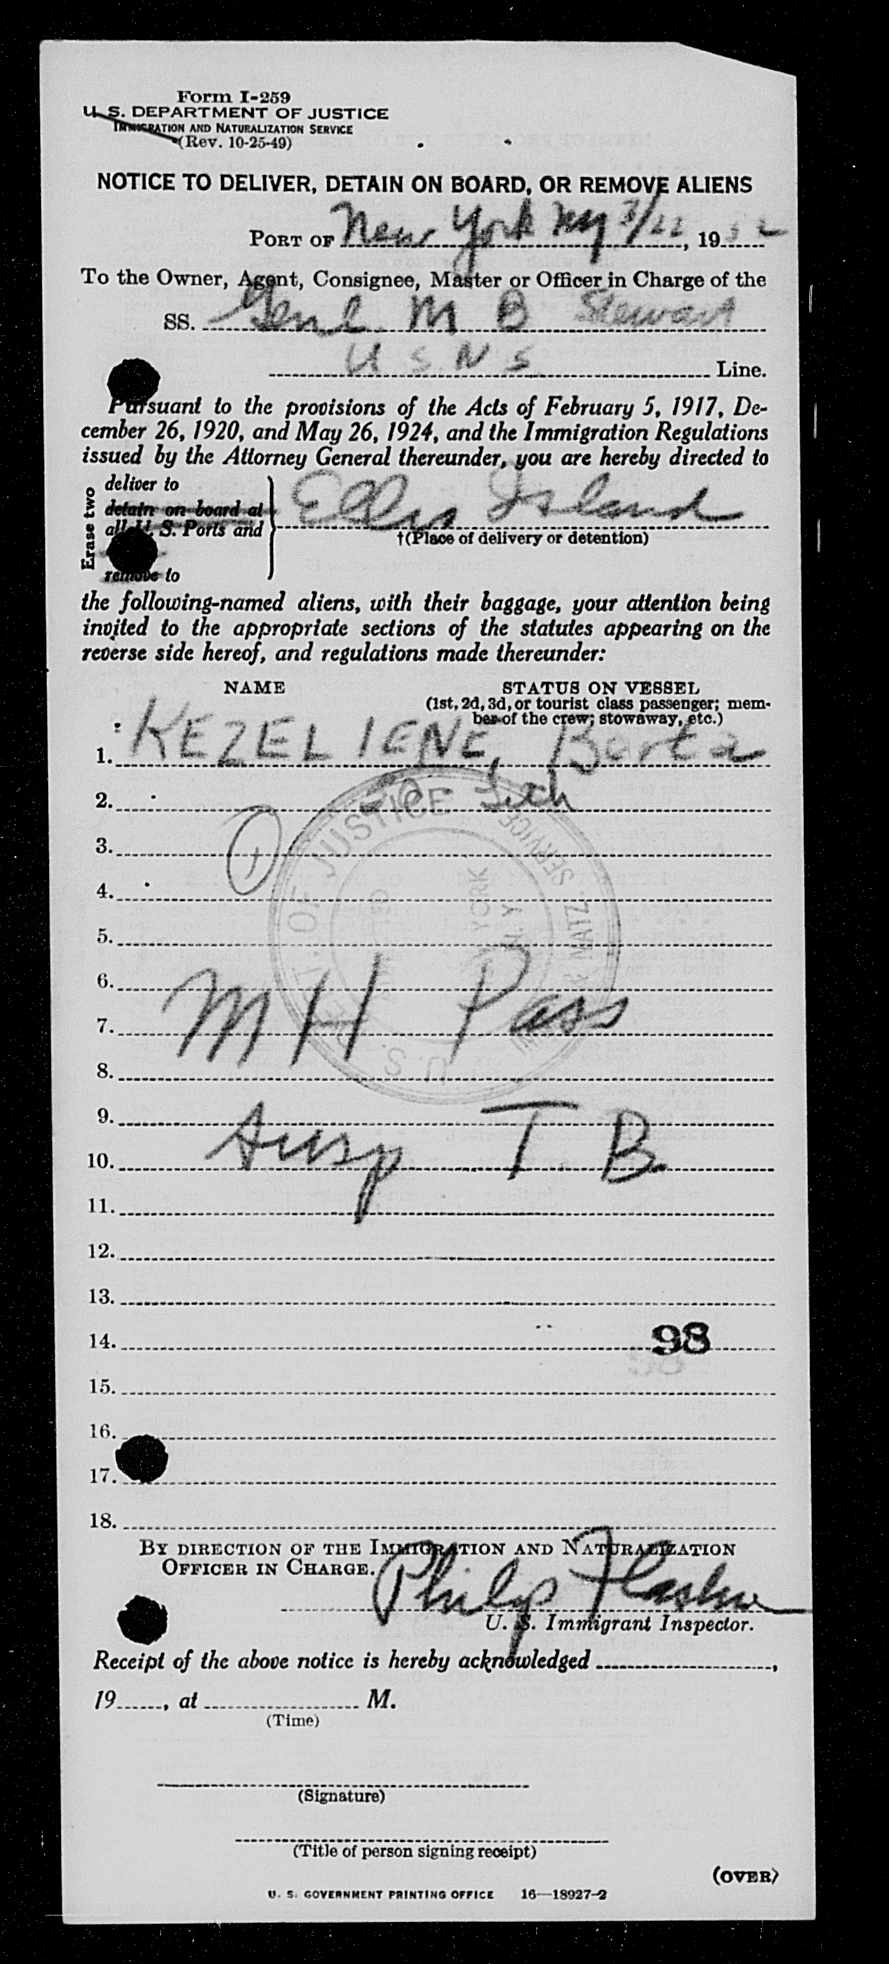 Form I-259
U. S. DEPARTMENT OF JUSTICE
IMMIGRATION AND NATURALIZATION SERVICE
(Rev. 10-25-49)
NOTICE TO DELIVER, DETAIN ON BOARD, OR REMOVE ALIENS
PORT OF New York NY 3/22, 1952
To the Owner, Agent, Consignee, Master or Officer in Charge of the
SS. Genl. M B Stewart
U S N S Line.
Pursuant to the provisions of the Acts of February 5, 1917, De-
cember 26, 1920, and May 26, 1924, and the Immigration Regulations
issued by the Attorney General thereunder, you are hereby directed to
Erase two
deliver to
detain on board at
all U. S. Ports and
remove to
Ellis Island
†(Place of delivery or detention)
the following-named aliens, with their baggage, your attention being
invited to the appropriate sections of the statutes appearing on the
reverse side hereof, and regulations made thereunder:
NAME STATUS ON VESSEL
(1st, 2d, 3d, or tourist class passenger; mem-
ber of the crew; stowaway, etc.)
1. KEZELIENE, Berta
2. Lith
3. 1
4.
5.
6.
7. MH Pass
8.
9.
10. Susp T B
11.
12.
13.
14. 98
15.
16.
17.
18.
BY DIRECTION OF THE IMMIGRATION AND NATURALIZATION
OFFICER IN CHARGE.
Philip
U. S. Immigrant Inspector.
Receipt of the above notice is hereby acknowledged ,
19 , at M.
(Time)
(Signature)
(Title of person signing receipt)
(OVER)
U. S. GOVERNMENT PRINTING OFFICE 16—18927-2